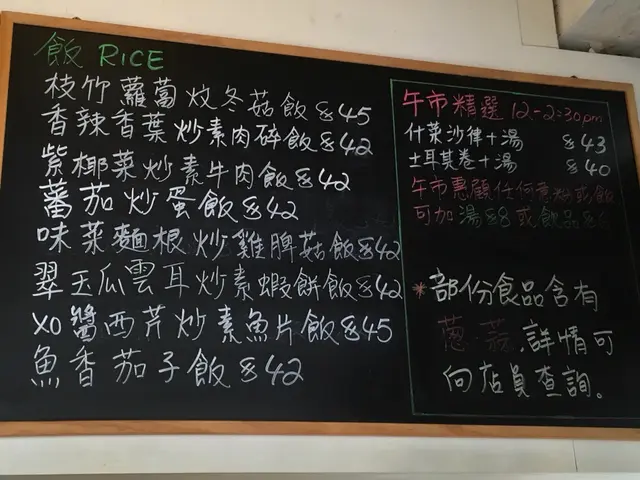 飯 RICE
枝竹蘿蔔炆冬菇飯 $45
香辣香葉炒素肉碎飯 $42
紫椰菜炒素牛肉飯 $42
蕃茄炒蛋飯 $42
味菜麵根炒雞脾菇飯 $42
翠玉瓜雲耳炒素蝦餅飯 $42
XO醬西芹炒素魚片飯 $45
魚香茄子飯 $42
午市精選 12-2:30pm
什菜沙律+湯 $43
土耳其卷+湯 $40
午市惠顧任何意粉或飯
可加湯 $8 或飲品
*部份食品含有
蔥、蒜，詳情可
向店員查詢。